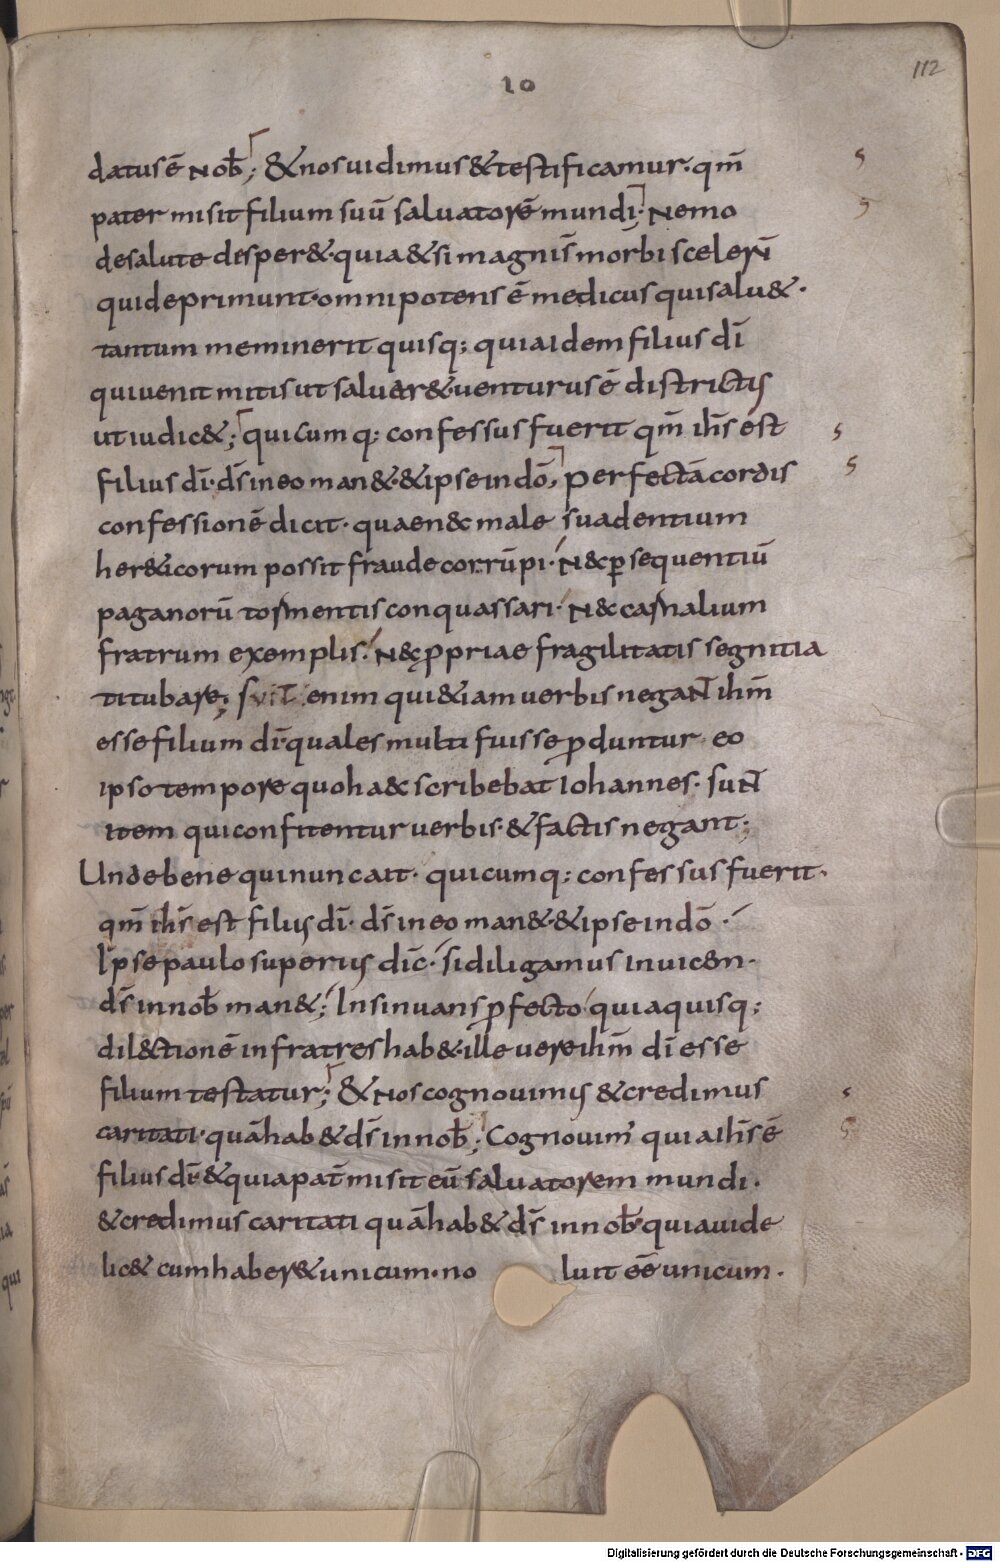 112
10
datus ē nob̄; & nos uidimus & testificamur. qm̄
pater misit filium suū saluatorē mundi; Nemo
de salute desper&. quia & si magnis morbi scelerū
qui deprimunt. omnipotens ē medicus qui salu&.
tantum meminerit quisq; quia idem filius dī
qui uenit mitis ut saluar&. uenturus ē districtus
ut iudic&; quicumq; confessus fuerit qm̄ ih̄s est
filius dī. ds̄ in eo man&. & ipse in dō. perfectā cordis
confessionē dicit. quae nec male suadentium
her&icorum possit fraude corrūpi. Nec ꝑsequentiū
paganorū tormentis conquassari. Nec carnalium
fratrum exemplis. Nec ꝓpriae fragilitatis segnitia
titubare; Sunt enim qui &iam uerbis negant ihm̄
esse filium dī. quales multi fuisse ꝑduntur eo
ipso tempore quo haec scribebat Iohannes. sunt
item qui confitentur uerbis. & factis negant;
Unde bene qui nunc ait. quicumq; confessus fuerit.
qm̄ ih̄s est filius dī. ds̄ in eo man&. & ipse in dō.
Ipse paulo superius dic̄. si diligamus inuicem.
ds̄ in nob̄ man&; Insinuans ꝑfecto quia quisq;
dil&tionē in fratres hab&. ille uere ihm̄ dī esse
filium testatur; & Nos cognouimus & credimus
caritati. quā hab& ds̄ in nob̄; Cognouim' quia ih̄s ē
filius dī. & quia pat̄ misit eū saluatorem mundi.
& credimus caritati quā hab& ds̄ in nob̄. quia uide
lic& cum haber& unicum. no luit eē unicum.
Digitalisierung gefördert durch die Deutsche Forschungsgemeinschaft - DFG